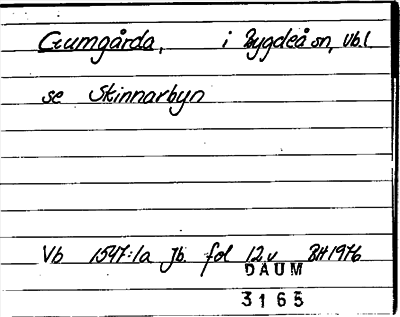 Gumgårda, i Bygdeå sn, Vb.l.
se Skinnarbyn
Vb 1547:1a Jb. fol 12 v BH 1976
DAUM
3165